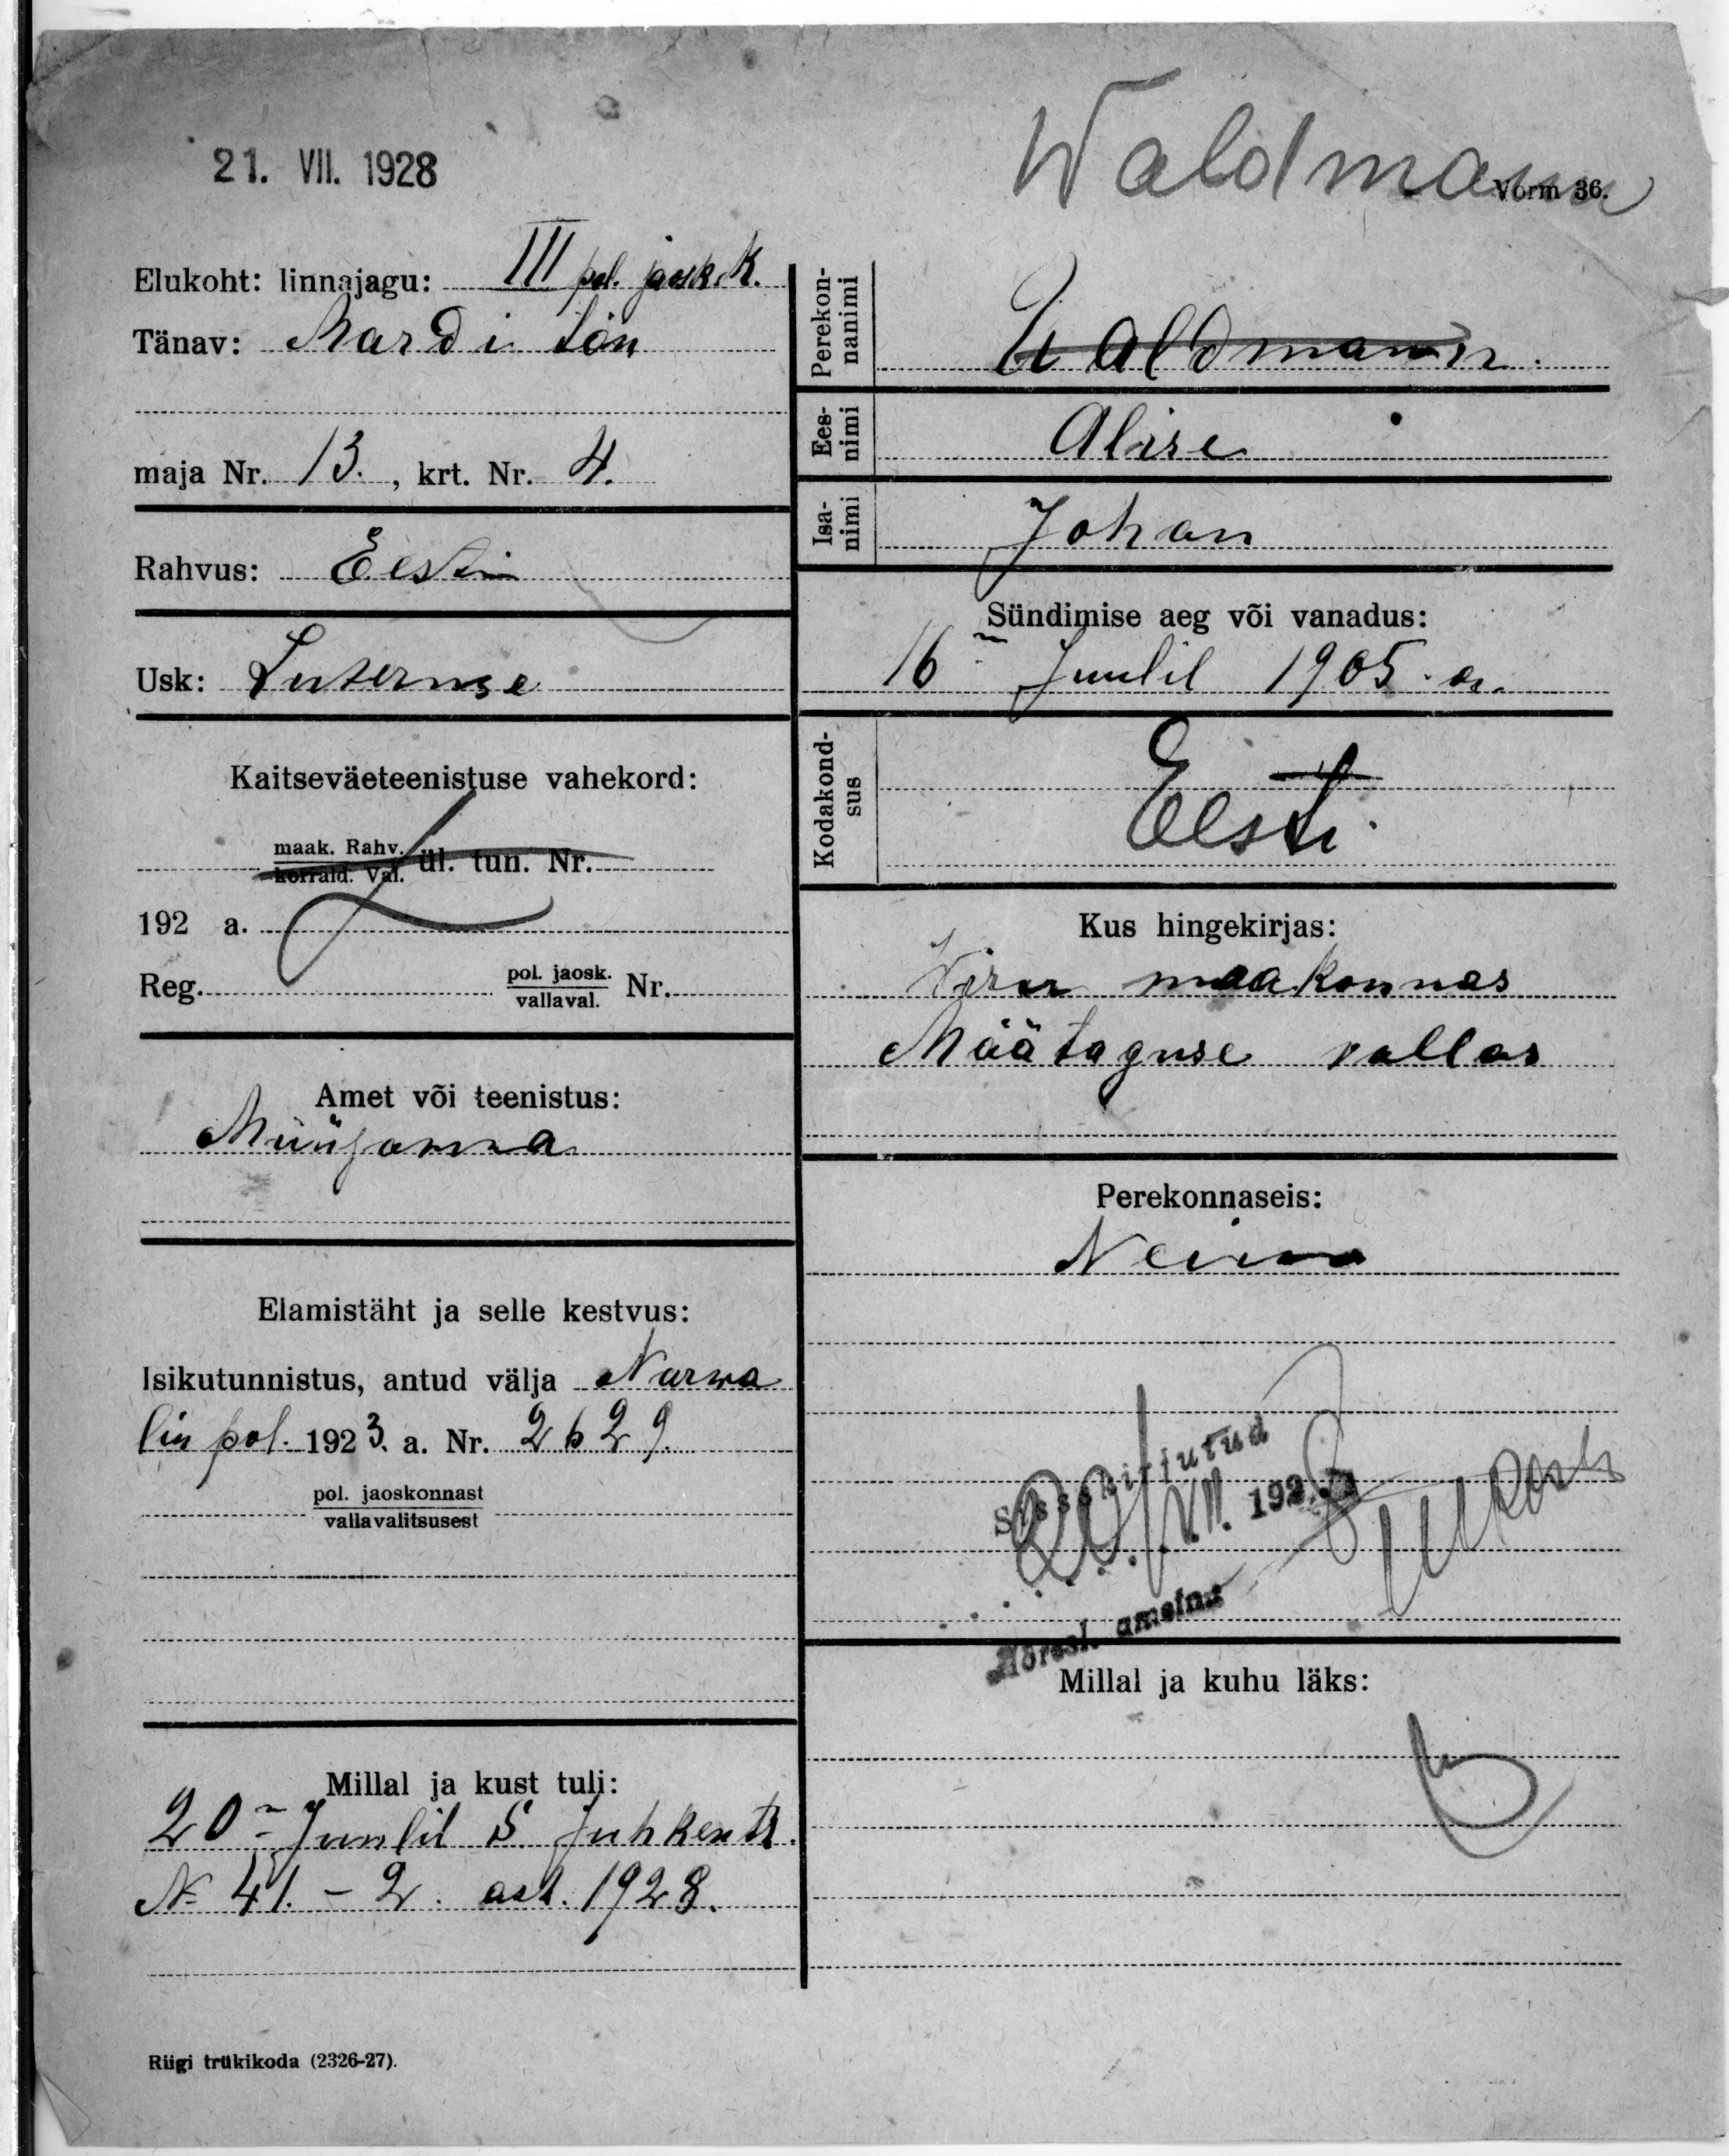 21. VII. 1928
Waldmann
Vorm 36.
Elukoht: linnajagu: III pol. jaosk. K.
Tänav: Mardi tän
maja Nr. 13., krt. Nr. 4.
Rahvus: Eesti
Usk: Luteruse
Kaitseväeteenistuse vahekord:
maak. Rahv.
korrald. Val. ül. tun. Nr.
192 a.
Reg. pol. jaosk.
vallaval. Nr.
Amet või teenistus:
Müüjanna
Elamistäht ja selle kestvus:
Isikutunnistus, antud välja Narwa
lin pol. 1923. a. Nr. 2629.
pol. jaoskonnast
vallavalitsusest
Millal ja kust tuli:
20 Juulil S. Juhkentt.
№ 41. – 2. ast. 1928.
Riigi trükikoda (2326-27).
Perekon-
nanimi
Waldmann.
Ees-
nimi
Alise
Isa-
nimi
Johan
Sündimise aeg või vanadus:
16 Juulil 1905. a.
Kodakond-
sus
Eesti
Kus hingekirjas:
Viru maakonnas
Määtaguse vallas
Perekonnaseis:
Neiu
Sissekirjutud
20. VII. 192
ametnik
Millal ja kuhu läks: